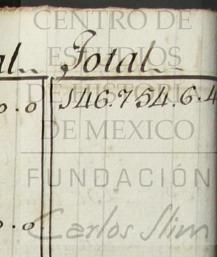 CENTRO DE
ESTUDIOS
DE HISTORIA
DE MEXICO
FUNDACIÓN
Carlos Slim
al.. Total..
o.o 146.754.6.4
o.o